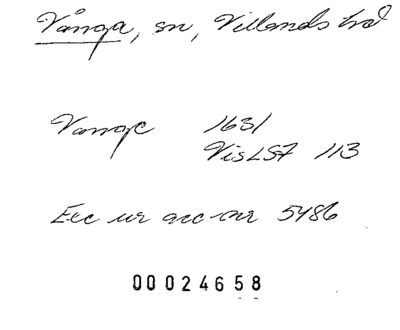 Vånga, sn, Villands hd
Vannge 1631
VisLSF 113
Exc ur acc-nr 5486
00024658